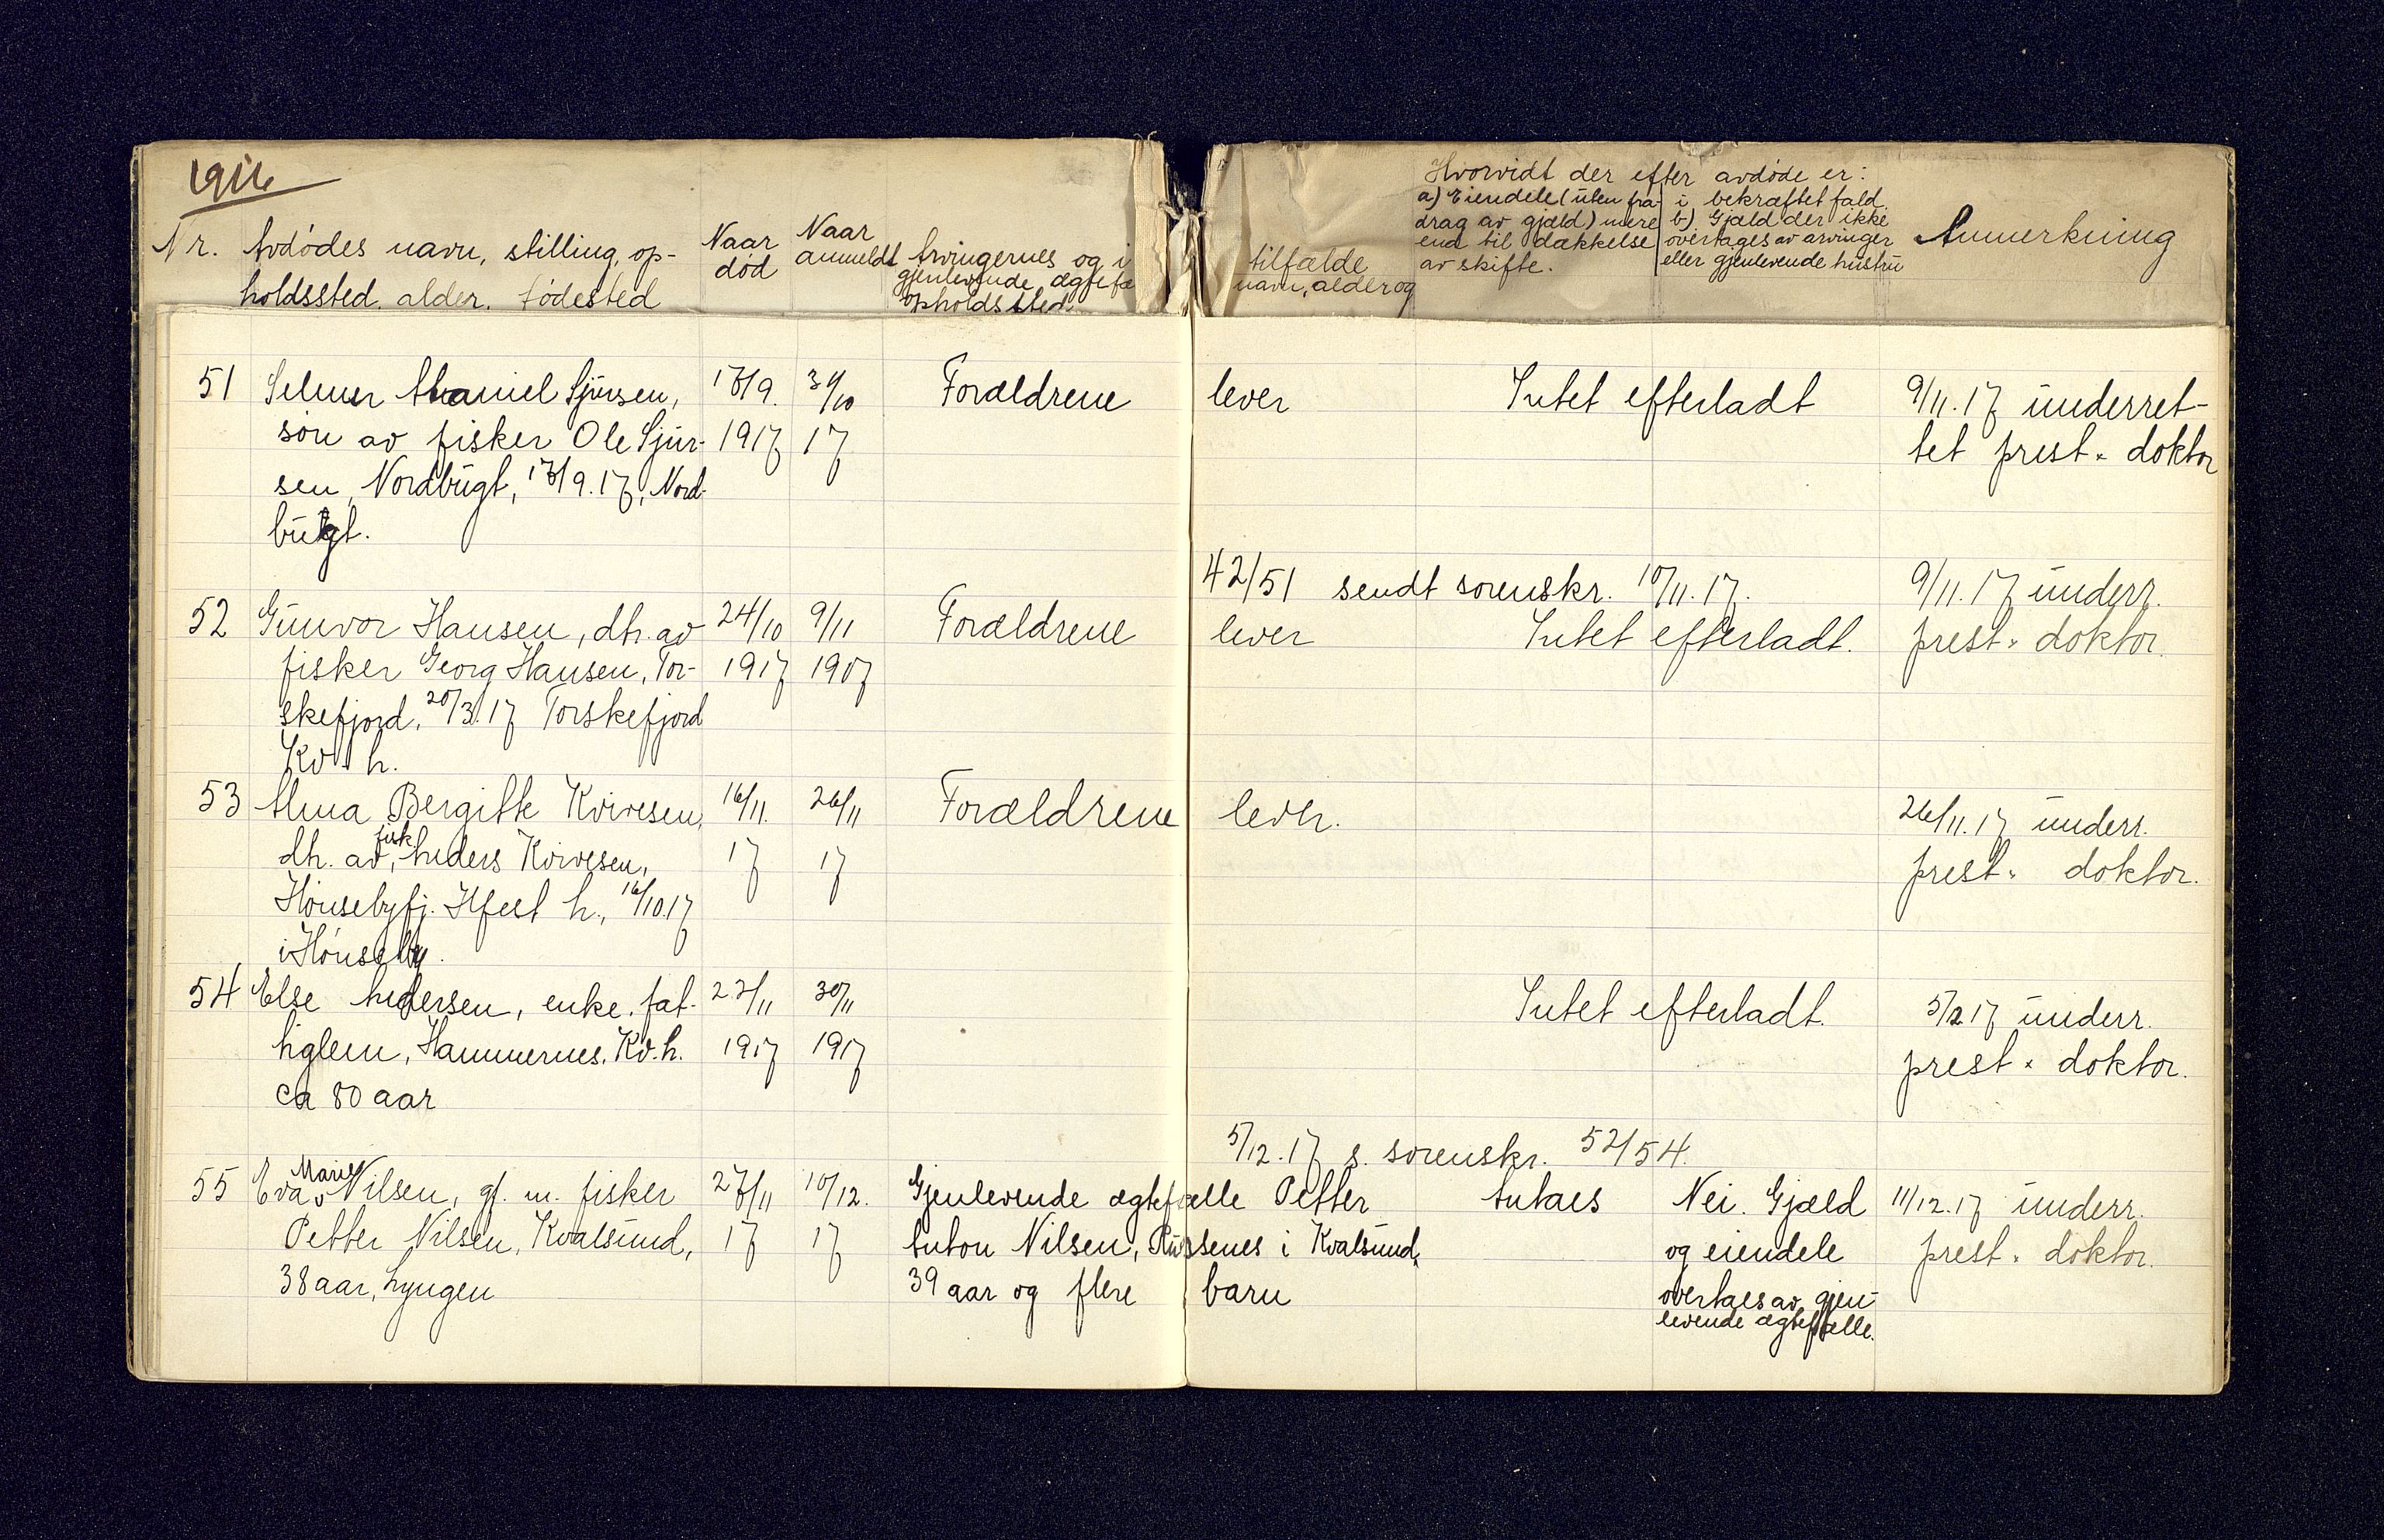 1916
Nr. Avdødes navn, stilling, op-
holdssted, alder, fødested
Naar
død
Naar
anmeldt
Arvingernes og i
gjenlevende ægtefæ
opholdssted
tilfælde
navn, alder og
Hvorvidt der efter avdøde er:
a) Eiendele (uten fra-
drag av gjæld) mere
end til dækkelse
av skifte.
i bekræftet fald
b) Gjæld der ikke
overtages av arvinger
eller gjenlevende hustru
Anmerkning
51 Selmer Sjursen, 17/9. 31/10 Forældrene lever Intet efterladt 9/11.17 underret-
søn av fisker Ole Sjur- 1917 17 tet prest × doktor
sen, Nordbugt, 17/9.17, Nord-
bugt.
42/51 sendt sorenskr. 10/11.17. 9/11.17 underr.
52 Gunvor Hansen, dtr. av 24/10 9/11 Forældrene lever Intet efterladt. prest × doktor.
fisker Georg Hansen, Tor- 1917 1907
skefjord, 20/3.17 Torskefjord
Kv. h.
53 Alma Bergitte Kvivesen, 16/11. 26/11 Forældrene lever. 26/11.17 underr.
dtr. av fisk. Anders Kvivesen, 17 17 prest × doktor.
Hønsebyfj. Hfest h., 16/10.17
i Hønseby.
54 Else Andersen, enke. fat- 23/11 30/11 Intet efterladt. 5/12 17 underr.
tiglem, Hammernes. Kv. h. 1917 1917 prest × doktor.
ca 80 aar
5/12.17 s. sorenskr. 52/54.
55 Eva Marie Nilsen, gf. m. fisker 27/11 10/12. Gjenlevende ægtefælle Petter Antaes Nei. Gjæld 11/12.17 underr.
Petter Nilsen, Kvalsund, 17 17 Anton Nilsen, Russenes i Kvalsund, og eiendele prest × doktor.
38 aar, Lyngen 39 aar og flere barn overtaes av gjen-
levende ægtefælle.